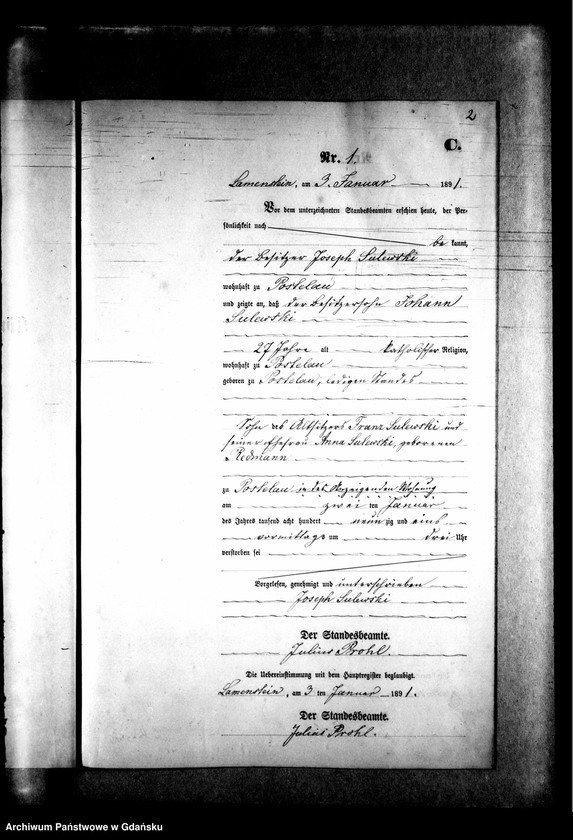 2
C.
Nr. 1.
Lamenstein, am 3. Januar 1891.
Vor dem unterzeichneten Standesbeamten erschien heute, der Per-
sönlichkeit nach
be kannt,
der Besitzer Joseph Sulewski
wohnhaft zu Postelau
und zeigte an, daß der Besitzersohn Johann
Sulewski
27 Jahre alt katholischer Religion,
wohnhaft zu Postelau
geboren zu Postelau, ledigen Standes
Sohn des Altsitzers Franz Sulewski und
seiner Ehefrau Anna Sulewski, geborenen
Redmann
zu Postelau in des Anzeigenden Wohnung
am zwei ten Januar
des Jahres tausend acht hundert neun zig und eins
vormittags um drei Uhr
verstorben sei
Vorgelesen, genehmigt und unterschrieben
Joseph Sulewski
Der Standesbeamte.
Julius Prohl.
Die Uebereinstimmung mit dem Hauptregister beglaubigt.
Lamenstein, am 3 ten Januar 1891.
Der Standesbeamte.
Julius Prohl.
Archiwum Państwowe w Gdańsku